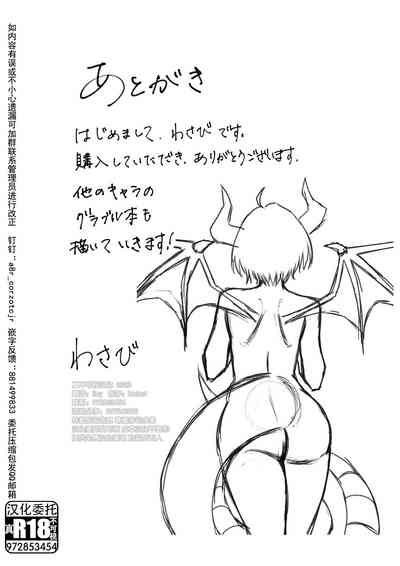 あとがき
はじめまして、わさびです。
購入していただき、ありがとうございます。
他のキャラの
グラブル本も
描いていきます!
わさび
如内容有误或不小心遗漏可加群联系管理员进行改正 钉钉：a8r_corzato.jr 嵌字反馈：881499833 委托压缩包发QQ邮箱
汉化委托
R18
972853454